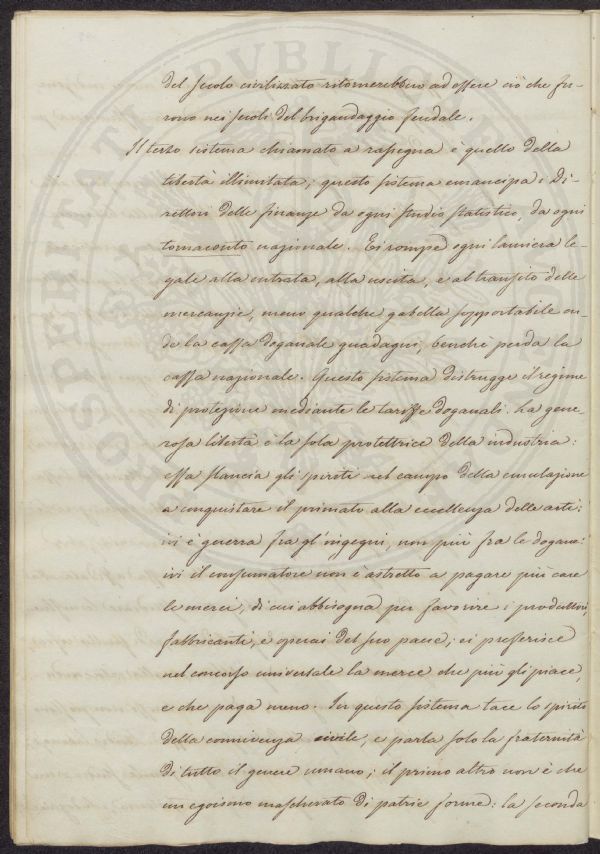 del secolo civilizzato ritornerebbero ad essere ciò che fu-
rono nei secoli del brigandaggio feudale.
Il terzo sistema chiamato a rassegna è quello della
libertà illimitata; questo sistema emancipa i Di-
rettori delle finanze da ogni studio statistico, da ogni
tornaconto nazionale. Ei rompe ogni barriera le-
gale alla entrata, alla uscita, e al transito delle
mercanzie, meno qualche gabella sopportabile on-
de la cassa doganale guadagni, benchè perda la
cassa nazionale. Questo sistema distrugge il regime
di protezione mediante le tariffe doganali. La gene-
rosa libertà è la sola protettrice della industria:
essa slancia gli spiriti nel campo della emulazione
a conquistare il primato alla eccellenza delle arti:
ivi è guerra fra gl'ingegni, non più fra le dogane:
ivi il consumatore non è astretto a pagare più care
le merci, di cui abbisogna per favorire i produttori,
fabbricanti, e operai del suo paese; ei preferisce
nel concorso universale la merce che più gli piace,
e che paga meno. In questo sistema tace lo spirito
della connivenza civile, e parla solo la fraternità
di tutto il genere umano; il primo altro non è che
un egoismo mascherato di patrie forme: la seconda
PROSPERITATI PVBLICAE